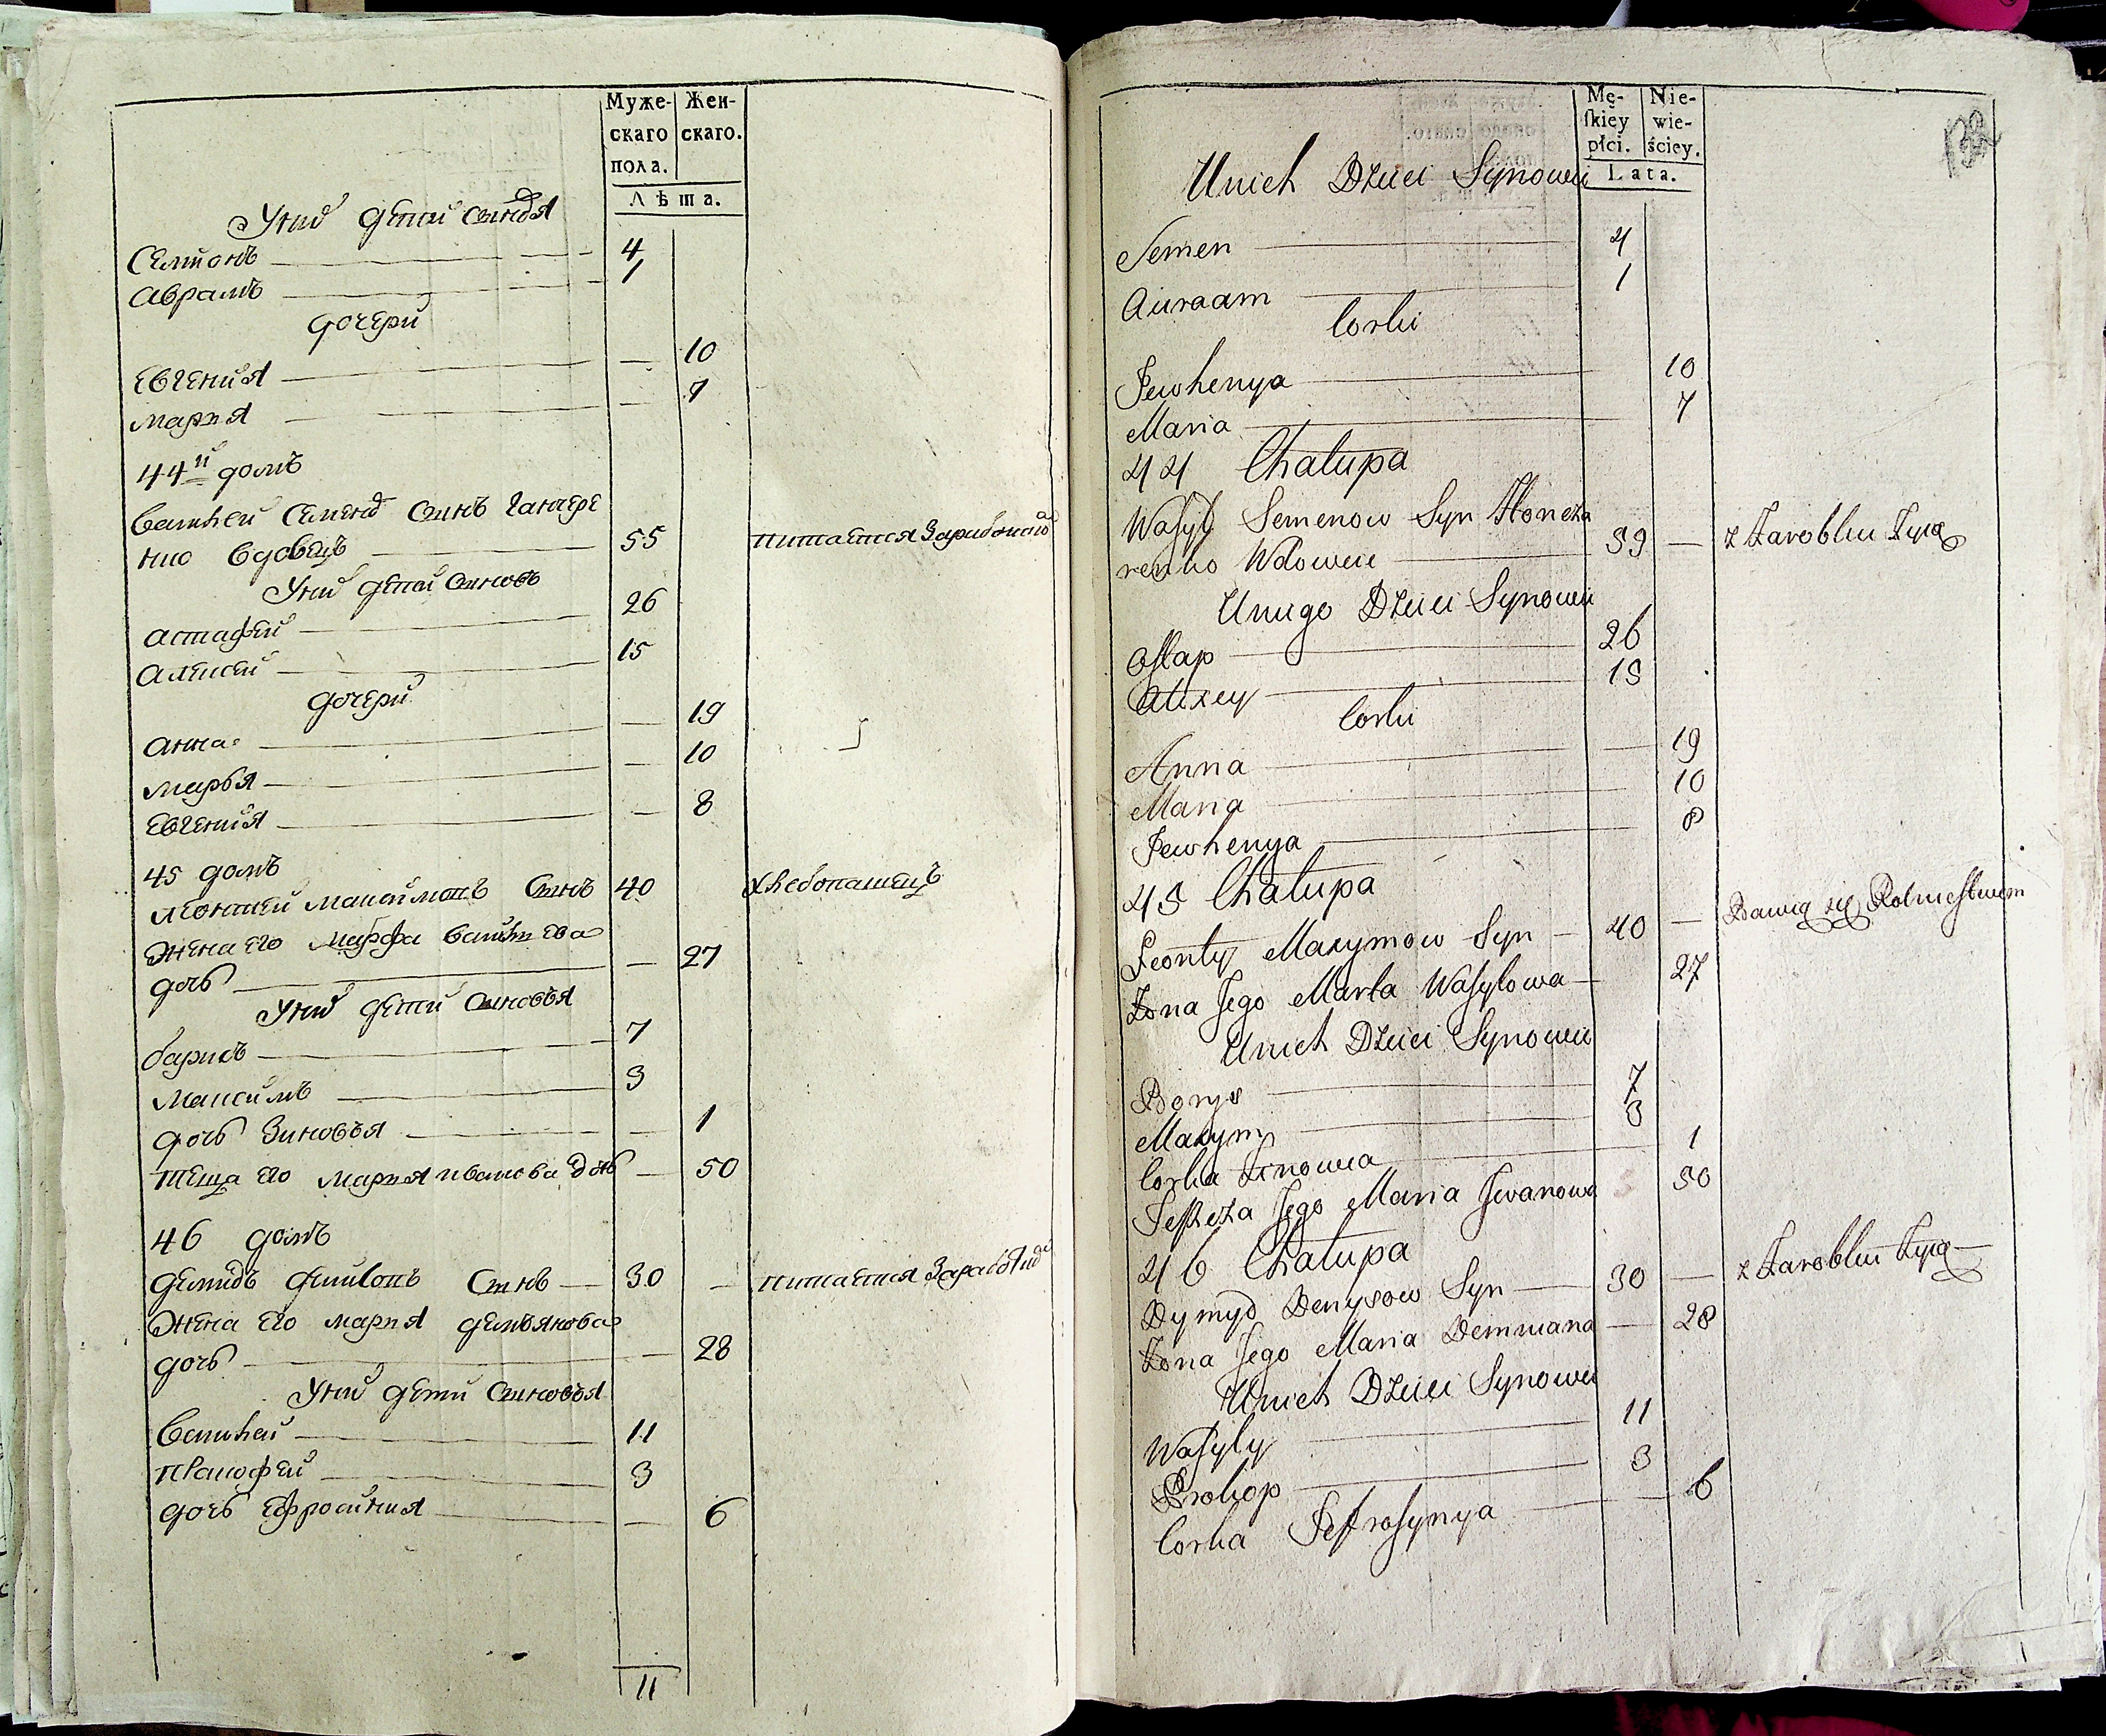 Муже-
скаго
пола.
Жен-
скаго.
Лѣта.
У них дети синовя
Семионъ 4
Аврамъ 1
дочери
Евгения — 10
Мария — 7
44й домъ
Василей Семенов синъ Ганчере
нко вдовецъ 55 питается Заработко
У них детей синовъ
Астафей 26
Алексей 15
дочери
Анна — 19
Марья — 10
Евгения — 8
45 домъ
Леонтей Максимовъ Синъ 40 хлебопашецъ
Жена его Марфа Василева
дочь — 27
У них дети синовья
Барисъ 7
Максимъ 3
дочь Зиновъя — 1
Теща его Мария Иванова дочь — 50
46 домъ
Демидъ Синъ — 30 — питается Заработко
Жена его Мария Демьянова
дочь — 28
У них дети синовья
Василей 11
Пракофей 3
дочь Ефросиния — 6
11
Mę-
ſkiéy
płci.
Nie-
wie-
ściey.
Lata.
132
Unich Dzieci Synowie
Semen 4
Auraam 1
Corki
Jewhenya 10
Maria 7
44 Chałupa
Wasyl Semenow Syn Honcza
renko Wdowiec 59 — z Zarobku Zyie
Uniego Dzieci Synowie
Ostap 26
Alexey 15
Corki
Anna — 19
Maria 10
Jewhenya 8
45 Chałupa
Leonty Maxymow Syn — 40 — Bawią się Rolnictwem
Zona Jego Marta Wasylowa — 27
Unich Dzieci Synowie
Borys 7
Maxym 3
Corka Zinowia 1
Teszcza Jego Maria Jwanowa 50
46 Chałupa
Dymyd Denysow Syn — 30 — z Zarobku Zyią
Zona Jego Maria Demiana — 28
Unich Dzieci Synowie
Wasyly 11
Prokop 3
Corka Jefrosynya 6